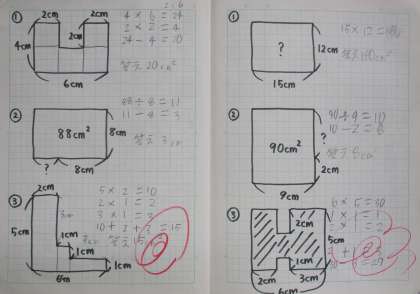 ①
2cm 2cm
2cm
4cm
6cm
4 × 6 = 24
2 × 2 = 4
24 - 4 = 20
答え 20cm²
②
88cm²
8cm
?
8cm
88 ÷ 8 = 11
11 - 8 = 3
答え 3cm
③
2cm
5cm
3cm
1cm
1cm
1cm
5 × 2 = 10
2 × 1 = 2
3 × 1 = 3
10 + 2 + 3 = 15
答え 15
①
?
12cm
15cm
15 × 12 = 180
答え 180cm²
②
90cm²
?
2cm
9cm
90 ÷ 9 = 10
10 - 2 = 8
答え 8cm
③
2cm
1cm
5cm
2cm
3cm
6cm
6 × 5 = 30